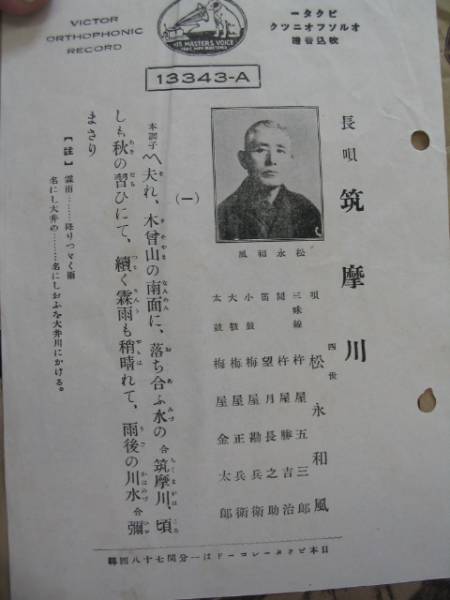 VICTOR
ORTHOPHONIC
RECORD
HIS MASTER'S VOICE
ビクター
オルソフオニツク
吹込音譜
13343-A
長唄 筑摩川
唄 四世 松永和風
三味線 杵屋五三郎
同 杵屋勝吉治
笛 望月長之助
小鼓 梅屋勘兵衛
大鼓 梅屋正兵衛
太鼓 梅屋金太郎
(一)
本調子〽夫れ、木曾山の南面に、落ち合ふ水の 合 筑摩川、頃
しも秋の習ひにて、續く霖雨も稍晴れて、雨後の川水 合 彌
まさり
【註】 霖雨………降りつゞく雨
名にし大井の………名にしおふを大井川にかける。
日本ビクターレコードは一分間七十八回轉